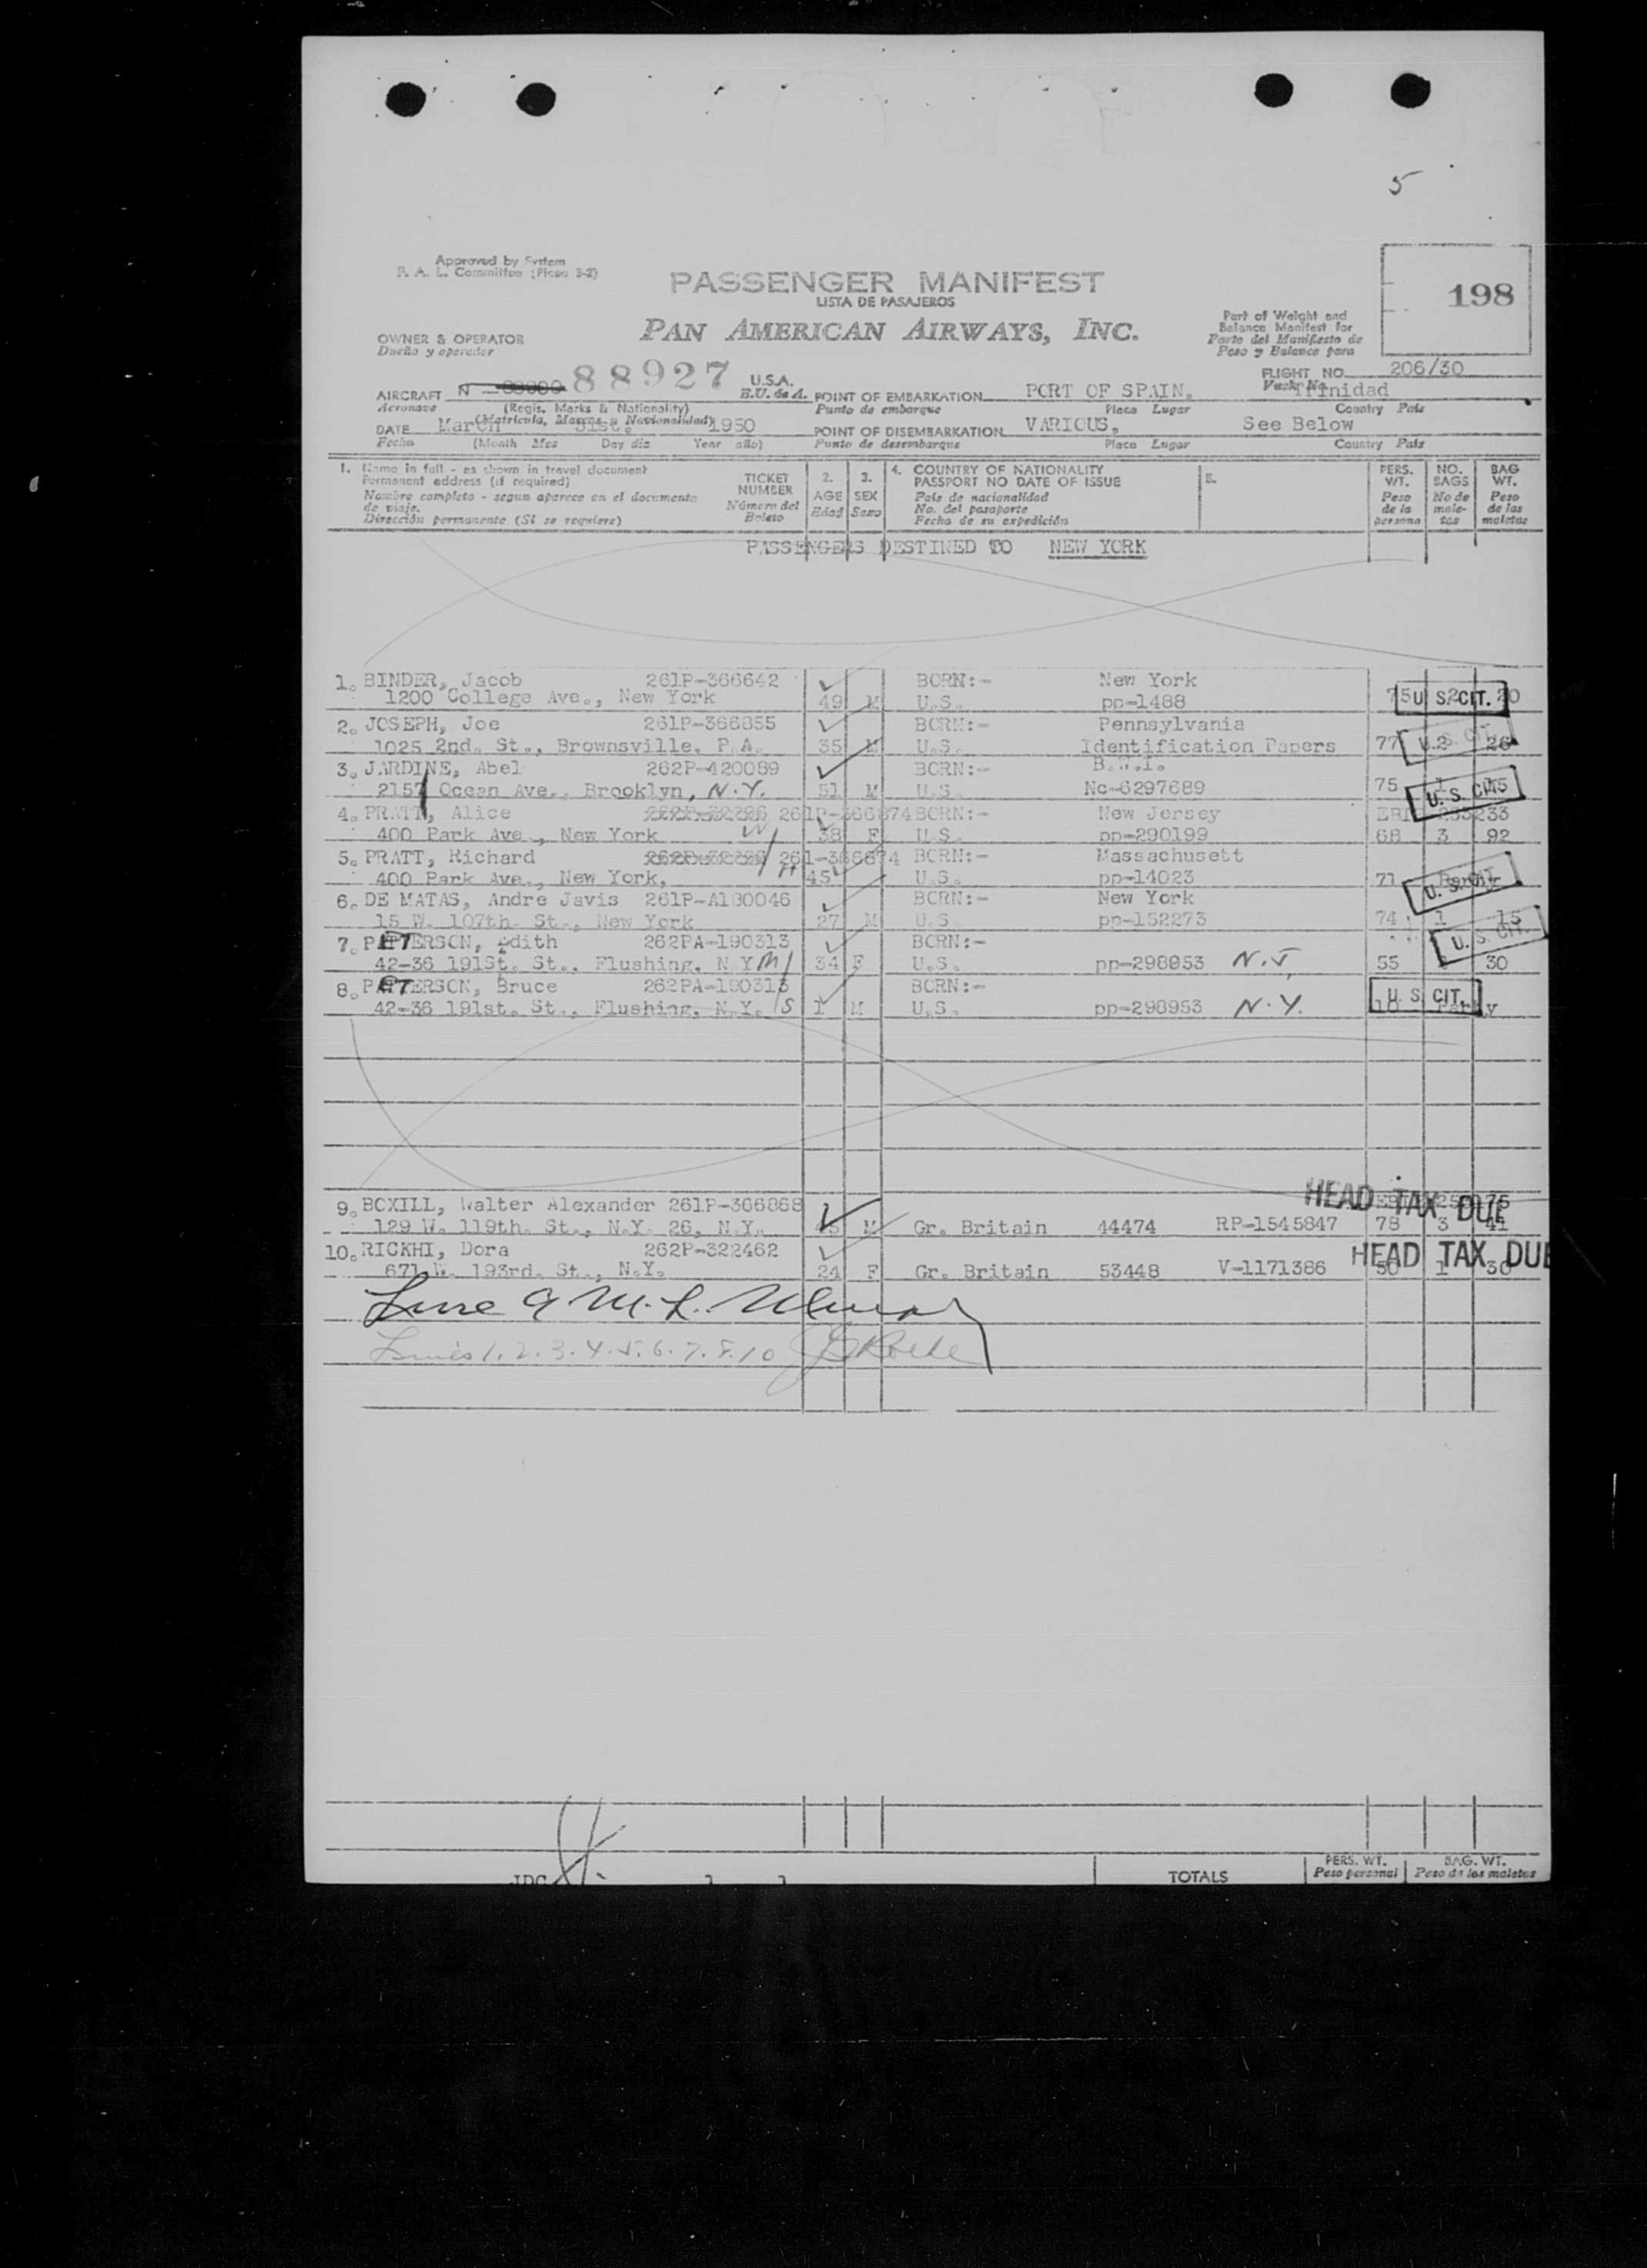 5
Approved by System
P. A. L. Committee (Picao 3-2)
198
PASSENGER MANIFEST
LISTA DE PASAJEROS
PAN AMERICAN AIRWAYS, INC.
Part of Weight and
Balance Manifest for
Parte del Manifiesto de
Peso y Balance para
OWNER & OPERATOR
Dueño y operador
FLIGHT NO. 206/30
AIRCRAFT N 88927 U.S.A. POINT OF EMBARKATION PORT OF SPAIN, Trinidad
Aeronave (Regis. Marks & Nationality) E.U. de A. Punto de embarque Place Lugar Country País
(Matrícula, Marcas y Nacionalidad)
DATE March 31st. 1950 POINT OF DISEMBARKATION VARIOUS, See Below
Fecha (Month Mes Day día Year año) Punto de desembarque Place Lugar Country País
1. Name in full - as shown in travel document
Permanent address (if required)
Nombre completo - segun aparece en el documento
de viaje.
Dirección permanente (Si se requiere)
TICKET
NUMBER
Número del
Boleto
2.
AGE
Edad
3.
SEX
Sexo
4. COUNTRY OF NATIONALITY
PASSPORT NO DATE OF ISSUE
País de nacionalidad
No. del pasaporte
Fecha de su expedición
5.
PERS.
WT.
Peso
de la
persona
NO.
BAGS
No de
male-
tas
BAG
WT.
Peso
de las
maletas
PASSENGERS DESTINED TO NEW YORK
1. BINDER, Jacob 261P-366642 BORN:- New York
1200 College Ave., New York 49 M U.S. pp-1488 75 2 20 U S CIT.
2. JOSEPH, Joe 261P-366855 BORN:- Pennsylvania
1025 2nd. St., Brownsville, P.A. 35 M U.S. Identification Papers 77 2 26 U. S. CIT.
3. JARDINE, Abel 262P-420089 BORN:- B.W.I.
2157 Ocean Ave., Brooklyn, N.Y. 51 M U.S. Nc-6297689 75 1 15 U. S. CIT.
4. PRATT, Alice 261P-366874 BORN:- New Jersey
400 Park Ave., New York W 38 F U.S. pp-290199 68 3 92
5. PRATT, Richard 261-366874 BORN:- Massachusett
400 Park Ave., New York, H 45 U.S. pp-14023 71 U. S. CIT.
6. DE MATAS, Andre Javis 261P-A180046 BORN:- New York
15 W. 107th. St., New York 27 M U.S. pp-152273 74 1 15
7. PATTERSON, Edith 262PA-190313 BORN:- U. S. CIT.
42-36 191St. St., Flushing, N.Y. M 34 F U.S. pp-298953 N.J. 55 30
8. PATTERSON, Bruce 262PA-190313 BORN:-
42-36 191st. St., Flushing, N.Y. S 1 M U.S. pp-298953 N.Y. U. S. CIT.
HEAD TAX DUE
9. BOXILL, Walter Alexander 261P-366868
129 W. 119th. St., N.Y. 26, N.Y. 45 M Gr. Britain 44474 RP-1545847 78 3 41
10. RICKHI, Dora 262P-322462
671 W. 193rd. St., N.Y. 24 F Gr. Britain 53448 V-1171386 50 1 30
HEAD TAX DUE
Line 9 M. L.
Lines 1. 2. 3. 4. 5. 6. 7. 8. 10
TOTALS
PERS. WT.
Peso personal
BAG. WT.
Peso de las maletas